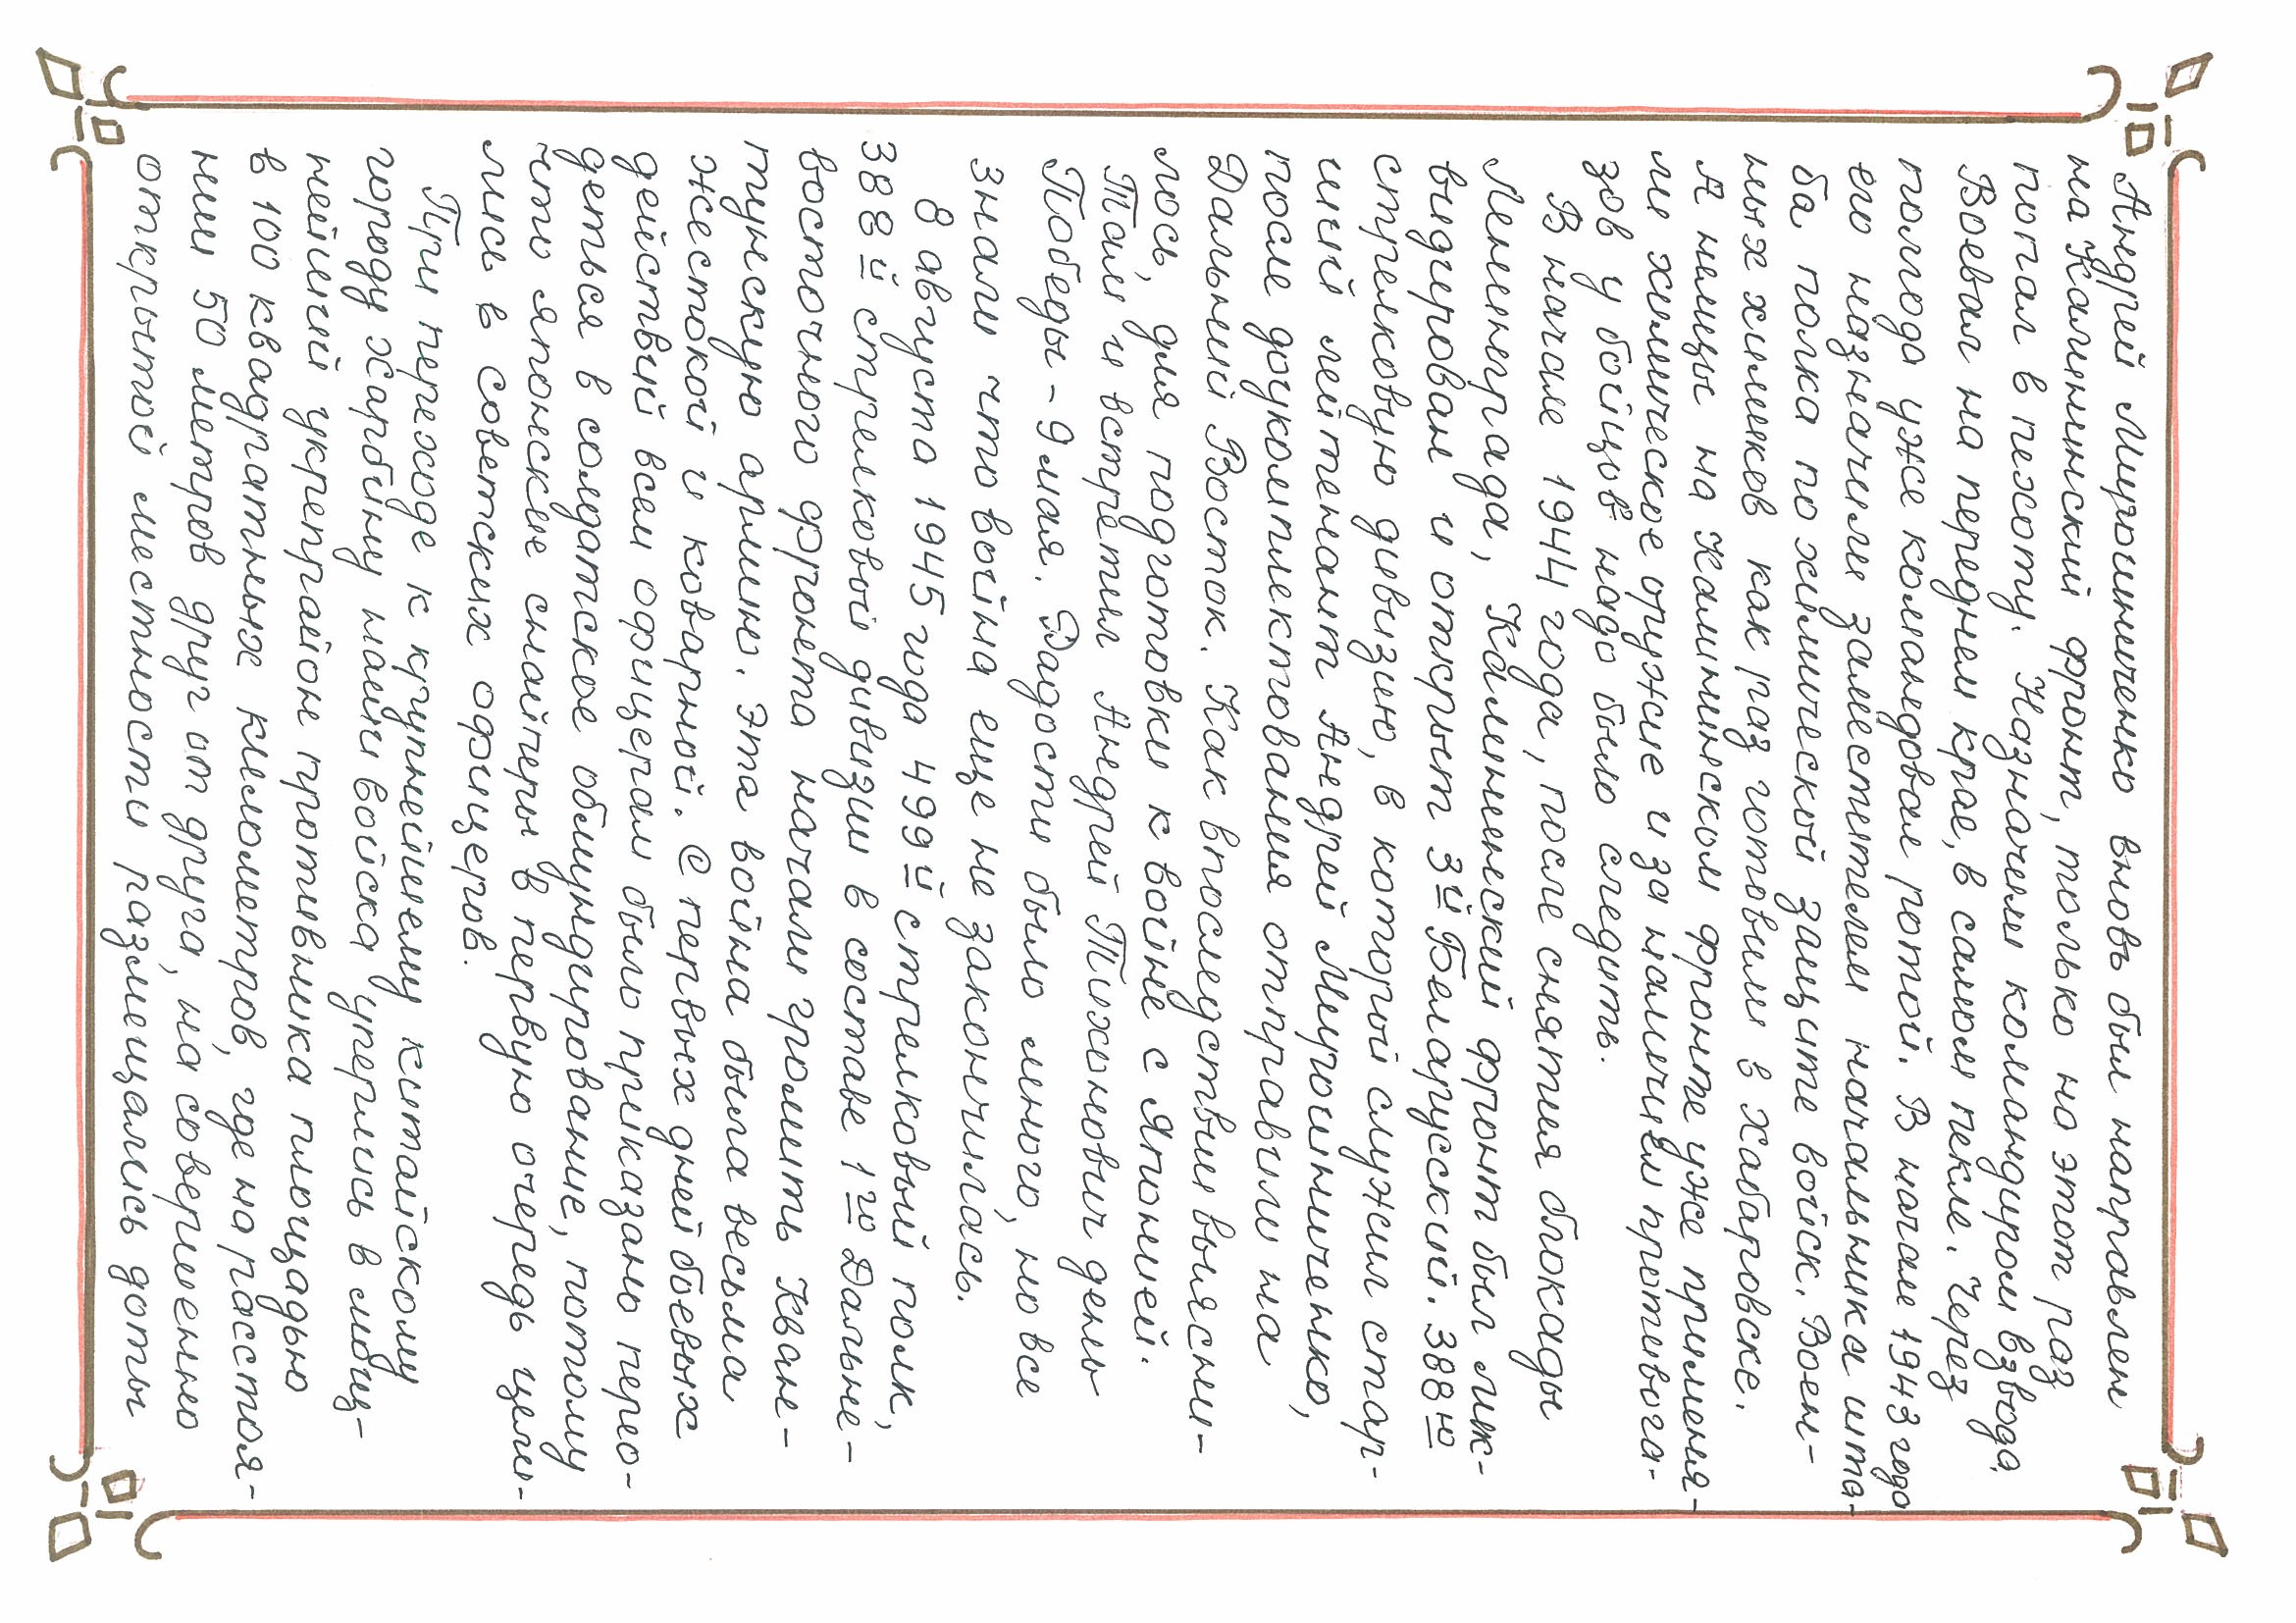 Андрей Мирошниченко вновь был направлен
на Калининский фронт, только на этот раз
попал в пехоту. Назначили командиром взвода.
Воевал на переднем крае, в самом пекле. Через
полгода уже командовал ротой. В начале 1943 года
его назначили заместителем начальника шта-
ба полка по химической защите войск. Воен-
ных химиков как раз готовили в Хабаровске.
А немцы на Калининском фронте уже применя-
ли химическое оружие и за наличием противога-
зов у бойцов надо было следить.
В начале 1944 года, после снятия блокады
Ленинграда, Калининский фронт был лик-
видирован и открыт 3й Беларусский. 388ю
стрелковую дивизию, в которой служил стар-
ший лейтенант Андрей Мирошниченко,
после доукомплектования отправили на
Дальний Восток. Как впоследствии выясни-
лось, для подготовки к войне с Японией.
Там и встретил Андрей Тихонович день
Победы - 9 мая. Радости было много, но все
знали что война еще не закончилась.
8 августа 1945 года 499й стрелковый полк,
388й стрелковой дивизии в составе 1го Дальне-
восточного фронта начали громить Кван-
тунскую армию. Эта война была весьма
жестокой и коварной. С первых дней боевых
действий всем офицерам было приказано перео-
деться в солдатское обмундирование, потому
что японские снайперы в первую очередь цели-
лись в советских офицеров.
При переходе к крупнейшему китайскому
городу Харбину наши войска уперлись в мощ-
нейший укрепрайон противника площадью
в 100 квадратных километров, где на расстоя-
нии 50 метров друг от друга, на совершенно
открытой местности размещались доты